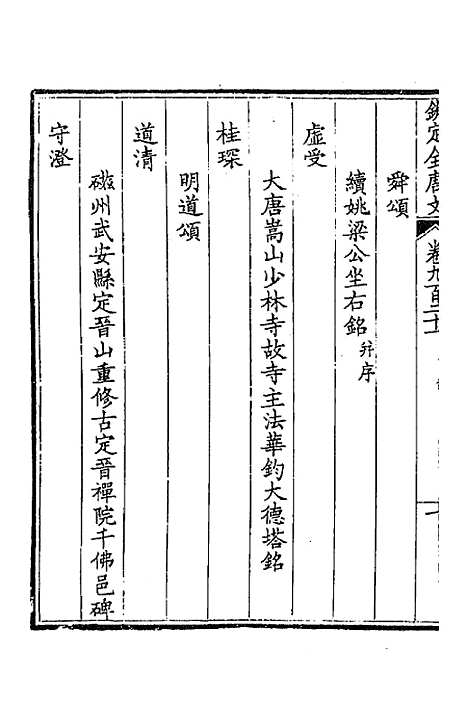 欽定全唐文
卷九百二十二
舜頌
續姚梁公坐右銘并序
虛受
大唐嵩山少林寺故寺主法華鈞大德塔銘
桂琛
明道頌
道清
磁州武安縣定晉山重修古定晉禪院千佛邑碑
守澄